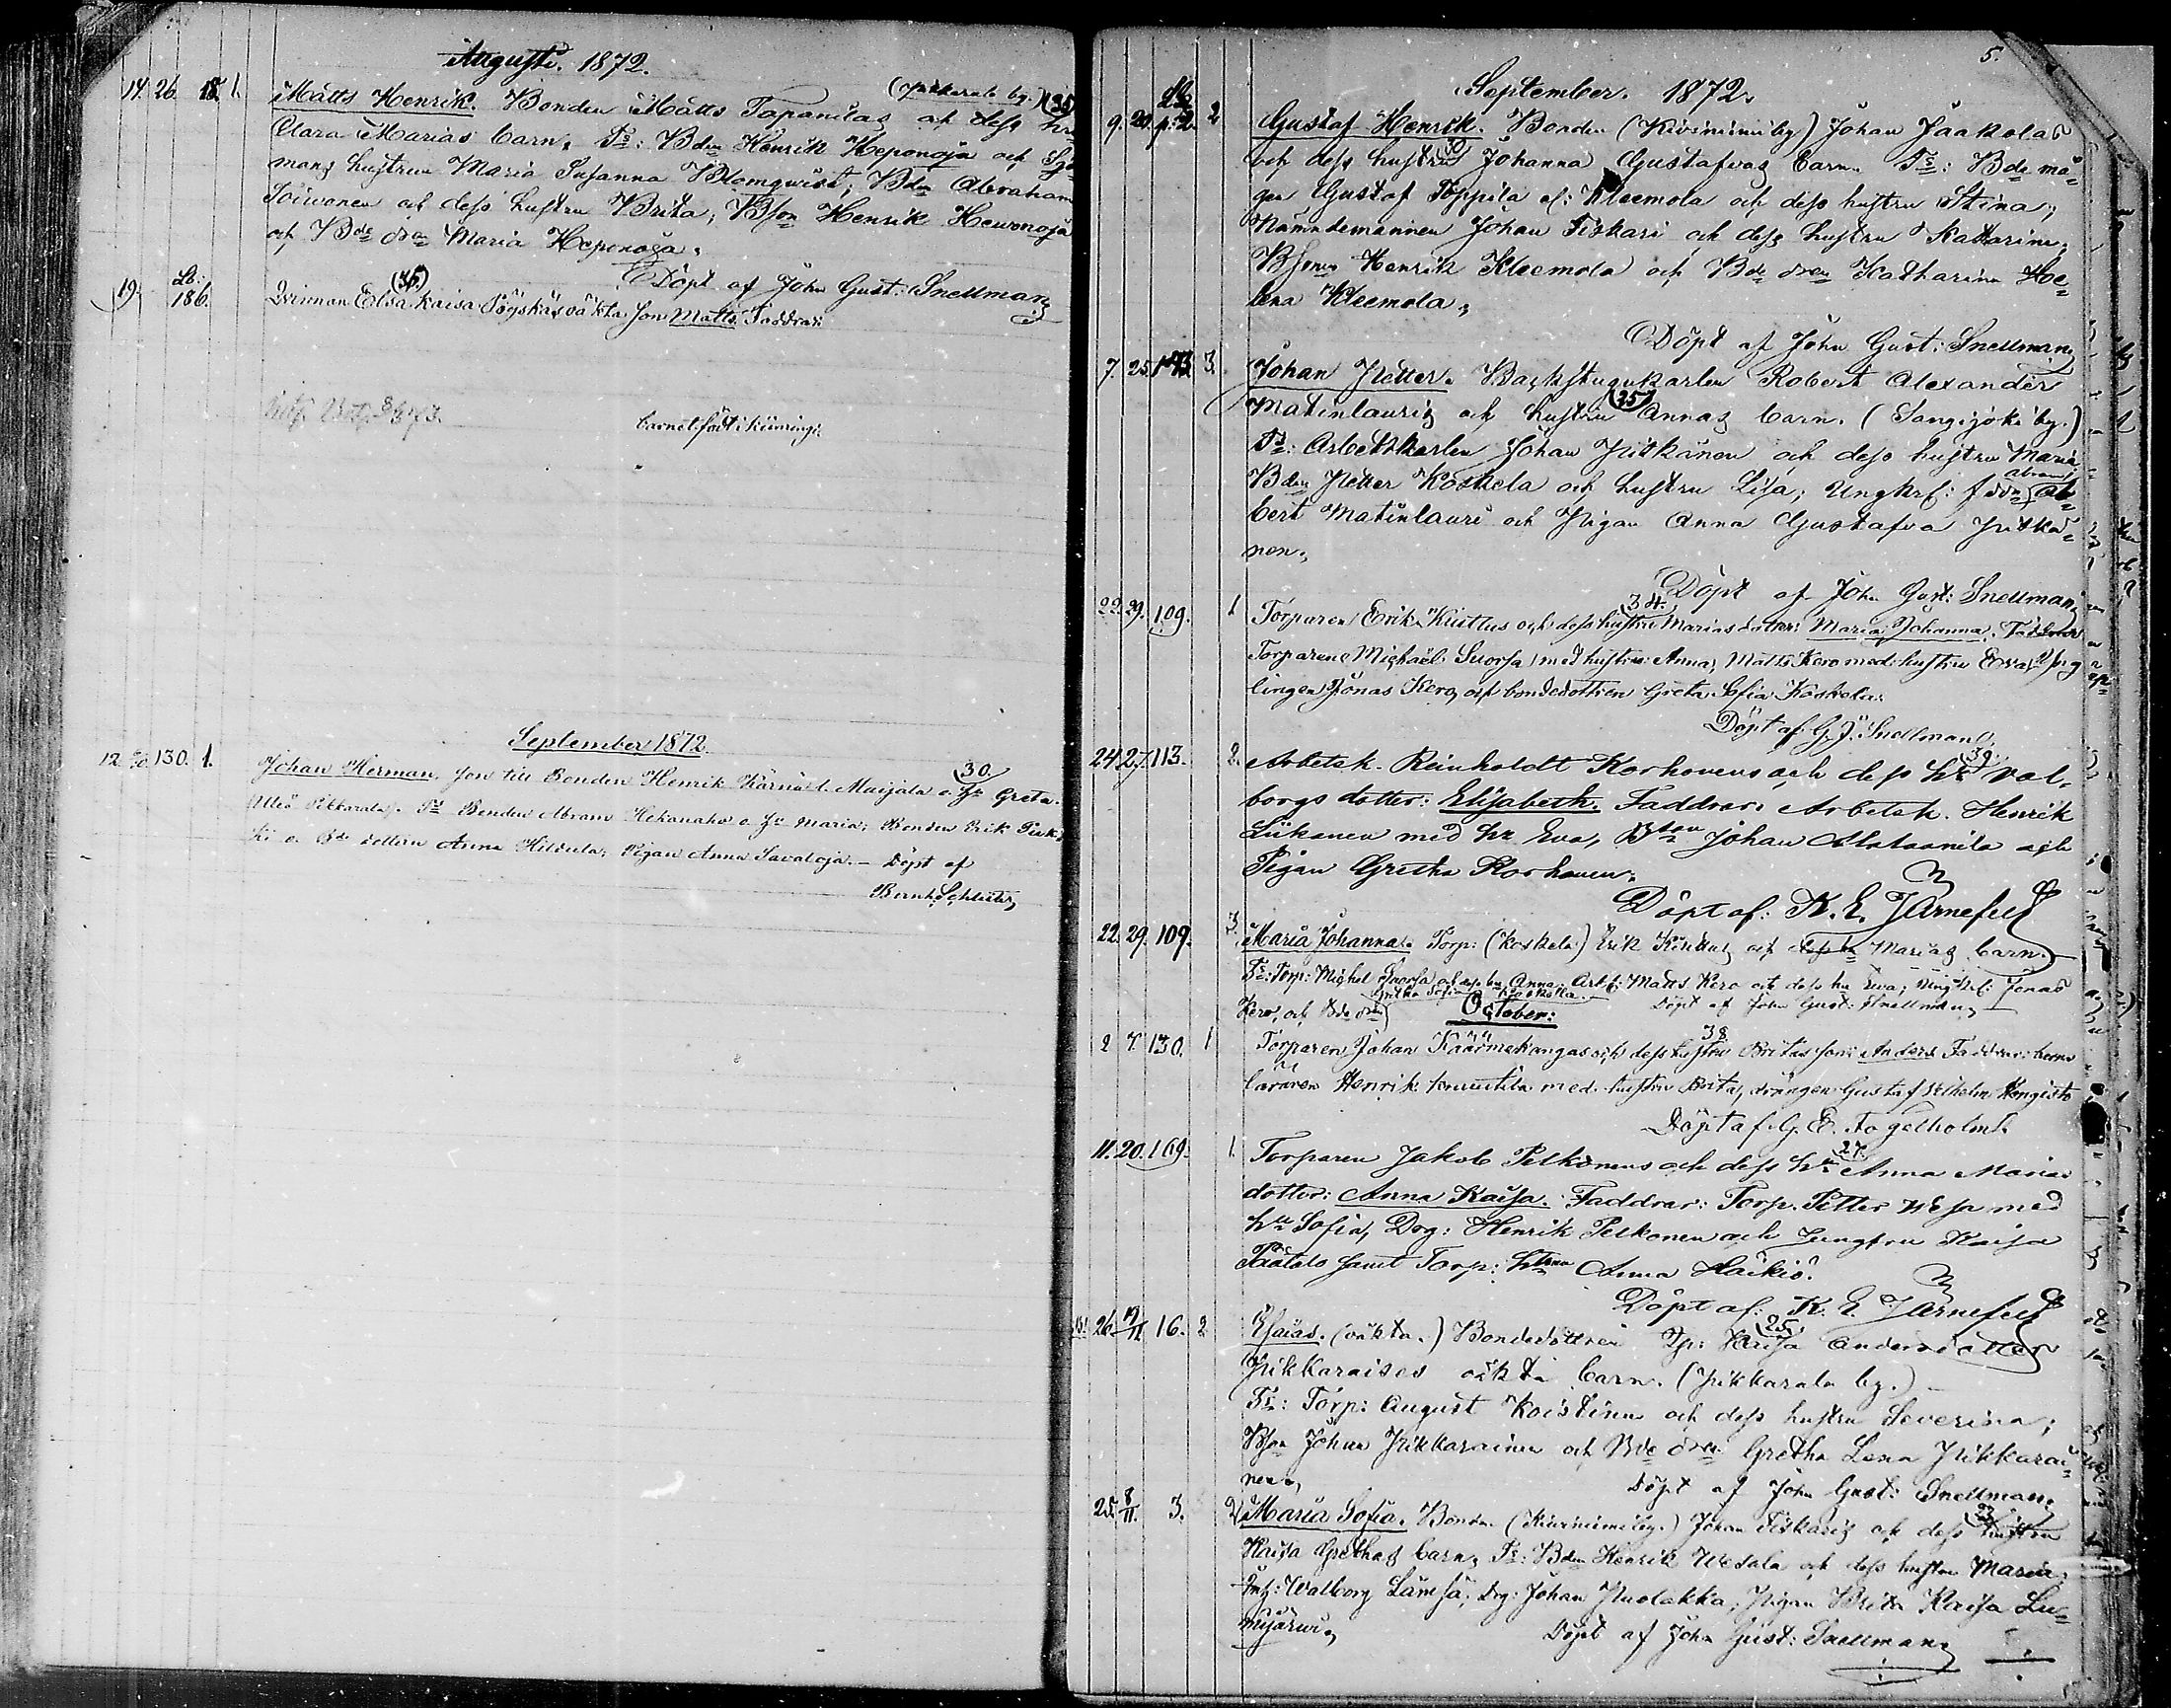 Augusti. 1872.
14. 26. 18. 1. Matts Henrik. Bonden Matts Tapanilas och dess hu (35)
Clara Marias barn. Fs: Bden Henrik Heponoja och
mans hustrun Maria Susanna Blomqwist; Bdn Abraham
Toiwonen och dess hustru Brita; Bson Henrik Hewonoja
och Bde dren Maria Heponoja.
Döpt af John Gust: Snellman
19. Lb. 186. Qvinnan Elsa Kaisa (36) oäkta son Matts. Faddrar:
barnet födt i Kiiminngi.
September 1872.
12. 20. 130. 1. Johan Herman, son till Bonden Henrik Kärnä l. Maijala o. hu Greta (30.)
(Uleå Pikkarala). Fs Bonden Abram Hekanaho o. hu Maria; Bonden Erik
ki o. Bde dottern Anna Hildula; Pigan Anna Savaloja. — Döpt af
Bernh. Schluter
5.
September. 1872.
9. 20. Lb p: 2. 2 Gustaf Henrik. Bonden (Kiviniemi by) Johan Jaakolas
och dess hustru (30) Johanna Gustafvas barn. Fs: Bde må-
gen Gustaf Toppila el: Kleemola och dess hustru Stina;
Nämndemannen Johan Fiskari och dess hustru Katharina;
Bsonen Henrik Kleemola och Bde dren Katharina He-
lena Kleemola.
Döpt af John Gust: Snellman
7. 25. 173. 3. Johan Petter. Backstugukarlen Robert Alexander
Matinlauris och hustru (35) Annas barn. (Sangijoki by.)
Fs: Arbetskarlen Johan Pitkänen och dess hustru Maria;
Bden Petter Koskela och hustru Lisa; Ungkrl: f ddn Abram Al-
bert Matinlauri och Pigan Anna Gustafva Pitkä-
nen.
Döpt af John Gust: Snellman
22. 29. 109. 1 Torparen Erik Kinttus och dess hustru (34.) Marias dotter: Maria Johanna. Faddrar
Torparen Michael Suorsa med hustru Anna, Matts Kero med hustru Ewa, Yng
lingen Jonas Kero, och bondedottren Greta Sofia Koskela.
Döpt af G. J. Snellman.
24. 27. 113. 2. Arbetsk. Reinholdt Korhonens och dess hu (39) Val-
borgs dotter: Elisabeth. Faddrar: Arbetsk. Henrik
Liikanen med hu Eva, Bson Johan Matsanila och
Pigan Gretha Korhonen.
Döpt af: K. E. Järnefelt
22. 29. 109. 3. Maria Johanna. Torp: (Koskela) Erik Kinttus och dess hu Marias barn.
Fs: Torp: Michel Suorsa och dess hu Anna; Arb: Matts Kero och dess hu Ewa; Ungkrl: Jonas
Kero, och Bde dren Gretha Sofia Koskela. Döpt af John Gust: Snellman
October:
2 7. 130. 1 Torparen Johan Käärmekangas och dess hustru (38) Britas son: Anders. Faddrar:
Henrik Knuutila med hustru Brita, drängen Gustaf Wilhelm Kongisto
Döpt af G. E. Fogelholm.
11. 20. 169. 1. Torparen Jakob Pelkonens och dess hu (27) Anna Maria
dotter: Anna Kaisa. Faddrar: Torp. Petter Wesa med
hu Sofia, Drg: Henrik Pelkonen och Jungfru Kaisa
Päätalo samt Torp: hstrun Anna Haikiö.
Döpt af: K. E. Järnefelt
26. 17/11 16. 2. Esaias. (oäkta.) Bondedottren Kaisa (25) Andersdotter
Pikkaraises oäkta barn. (Pikkarala by.)
Fs: Torp: August Koistinen och dess hustru Severina;
Bson Johan Pikkarainen och Bde dren Gretha Lena Pikkarai-
nen.
Döpt af John Gust: Snellman.
25. 8/11. 3. 2 Maria Sofia. Bonden (Kiviniemi by.) Johan Fiskaris och dess hustru
Kaisa Grethas barn. Fs: Bden Henrik Wesala och dess hustru Maria;
Walborg Lämsä; Drg: Johan Nuolakka; Pigan Brita Kaisa Lu-
mijärwi.
Döpt af John Gust: Snellman